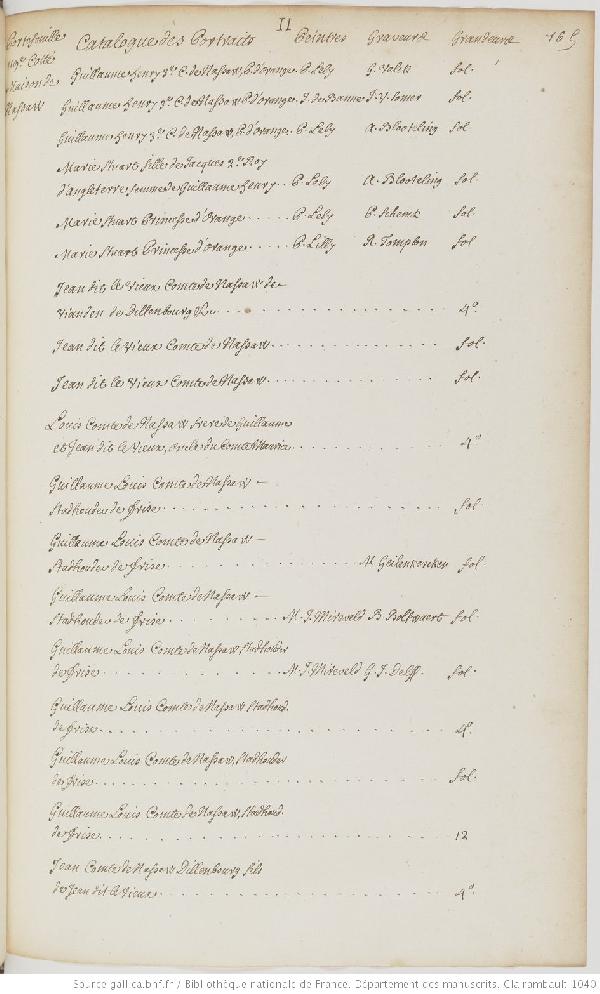 11
Portefeuille Catalogue des Portraits Peintres Graveurs Grandeurs 165
Maison de Nassaw
Guillaume henry 3e. C. de Nassaw, P. d'orange P. Lely G. Valck fol.
Guillaume henry 3e. C. de Nassaw P. d'orange J. de Banne J. V. Somer fol.
Guillaume henry 3e. C. de Nassaw, P. d'orange P. Lely A. Blooteling fol
Marie Stuart fille de Jacques 2e. Roy
d'angleterre femme de Guillaume henry P. Lely A. Blooteling fol.
Marie Stuart Princesse d'Orange P. Lely P. Schenck fol.
Marie Stuart Princesse d'Orange P. Lilly R. Tompson fol
Jean dit le Vieux Comte de Nassaw de
Vianden de Dillenbourg &c. 4o.
Jean dit le vieux Comte de Nassaw fol.
Jean dit le vieux Comte de Nassaw fol.
Louis Comte de Nassaw frere de Guillaume
et Jean dit le Vieux, oncle du Comte Maurice 4o
Guillaume Louis Comte de Nassaw —
Stadhouder de frise fol.
Guillaume Louis Comte de Nassaw —
Stadhouder de frise N. Geilenkercken fol
Guillaume Louis Comte de Nassaw —
Stadhouder de frise M. J. Mireveld B. Bolswaert fol.
Guillaume Louis Comte de Nassaw, Stadholder
de frise M. J. Mireveld G. J. Delff. fol.
Guillaume Louis Comte de Nassaw, Stadhoud.
de frise 4o.
Guillaume Louis Comte de Nassaw, Stadholder
de frise fol.
Guillaume Louis Comte de Nassaw, Stadhoud.
de frise 12
Jean Comte de Nassaw Dillenbourg fils
de Jean dit le vieux 4o.
Source gallica.bnf.fr / Bibliothèque nationale de France. Département des manuscrits. Clairambault 1040